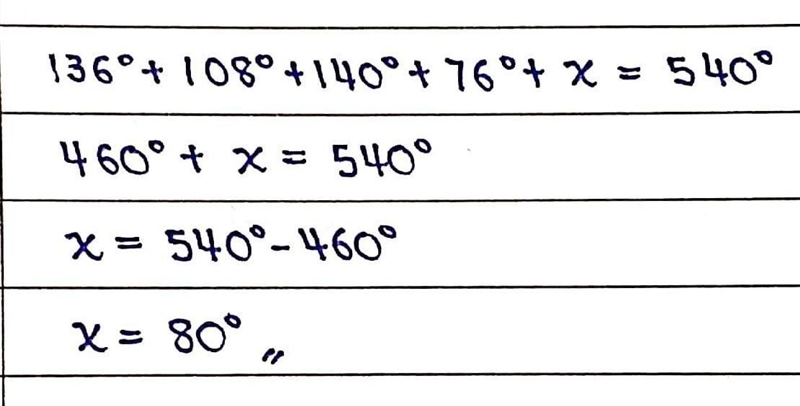 136° + 108° + 140° + 76° + x = 540°
460° + x = 540°
x = 540° - 460°
x = 80° ,,